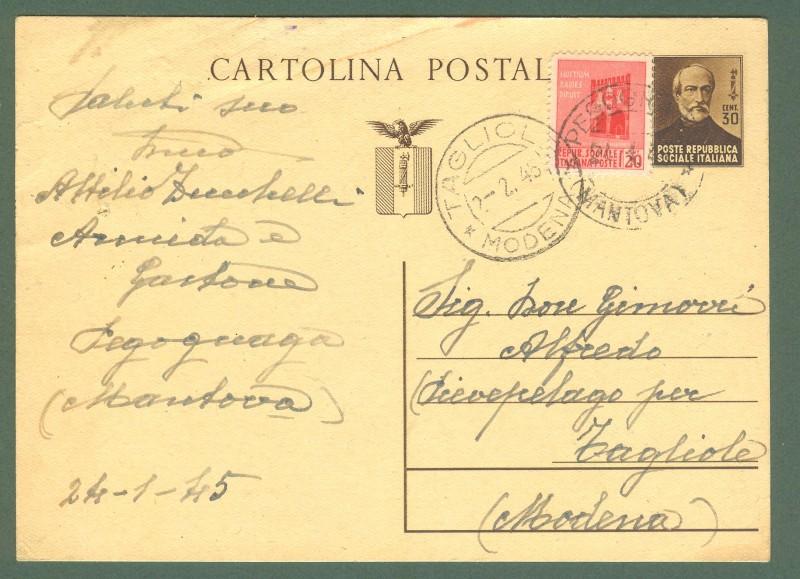 CARTOLINA POSTAL
HOSTIUM
RABIES
DIRUIT
REPUB. SOCIALE
ITALIANA POSTE 20
CENT.
30
POSTE REPUBBLICA
SOCIALE ITALIANA
TAGLIOLE
2-2.45
* MODENA
PEGOGNAGA
* MANTOVA *
Saluti suo
Attilio Zucchelli
Armida e
Gastone
Pegognaga
(Mantova)
24-1-45
Sig. Don Gimorri
Alfredo
(Pievepelago per
Tagliole
(Modena)